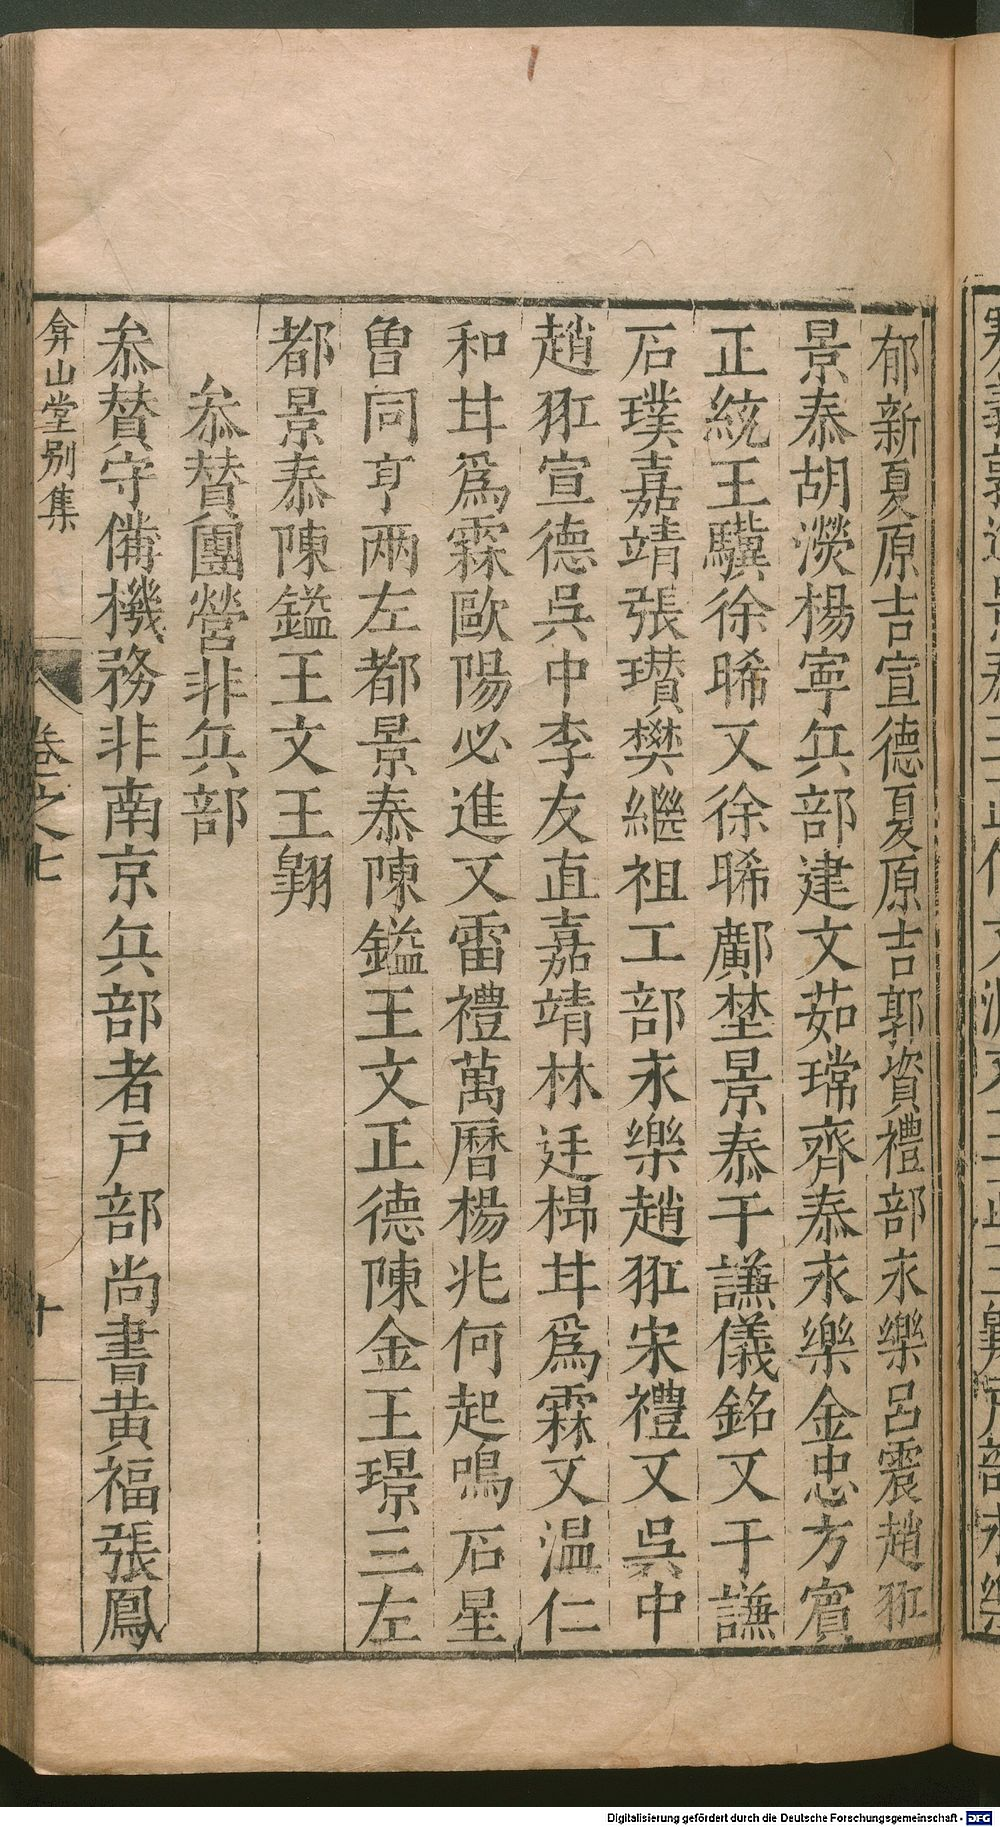 郁新夏原吉宣德夏原吉郭資禮部永樂呂震趙羾
景泰胡濙楊寧兵部建文茹瑺齊泰永樂金忠方賓
正統王驥徐晞又徐晞鄺埜景泰于謙儀銘又于謙
石璞嘉靖張瓚樊繼祖工部永樂趙羾宋禮又吳中
趙羾宣德吳中李友直嘉靖林廷㭿甘爲霖又温仁
和甘爲霖歐陽必進又雷禮萬曆楊兆何起鳴石星
曾同亨兩左都景泰陳鎰王文正德陳金王璟三左
都景泰陳鎰王文王翱
叅賛團營非兵部
叅賛守備機務非南京兵部者戶部尚書黄福張鳳
弇山堂别集
卷之七
十
Digitalisierung gefördert durch die Deutsche Forschungsgemeinschaft - DFG